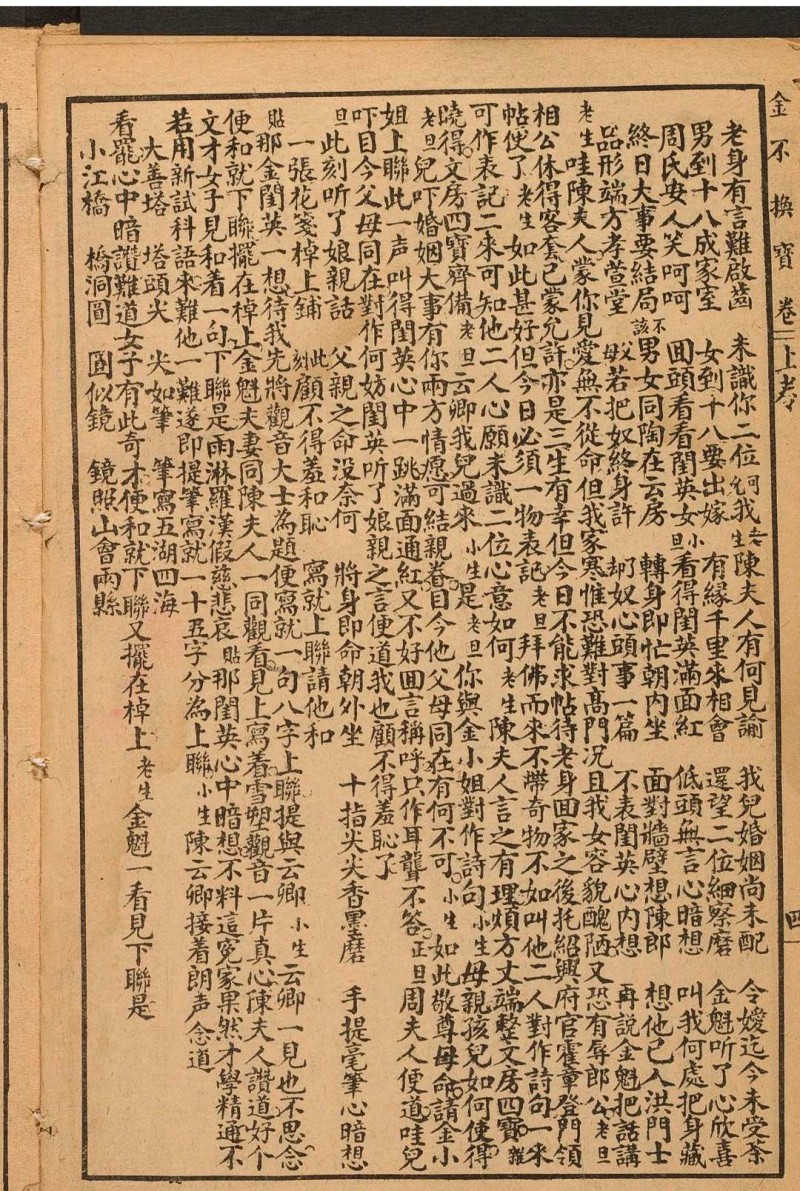 金不換寶卷二上孝 四
老身有言難啟齒 未識你二位允可我 老生陳夫人有何見諭 我兒婚姻尚未配 令嬡迄今未受茶
男到十八成家室 女到十八要出嫁 有緣千里來相會 還望二位細察磨 金魁听了心欣喜
周氏安人笑呵呵 囬頭看看閨英女 小旦看得閨英滿面紅 低頭無言心暗想 叫我何處把身藏
終日大事要結局 不該男女同陶在云房 轉身即忙朝內坐 面對牆壁想陳郎 想他已入洪門士
品形端方孝萱堂 父母若把奴終身許 却奴心頭事一篇 不表閨英心內想 再說金魁把話講
老生哇陳夫人蒙你見愛無不從命但我家寒惟恐難對高門况且我女容貌醜陋又恐有辱郎公老旦
相公休得客套已蒙允許亦是三生有幸但今日不能求帖待老身囬家之後托紹興府官霍章登門領
帖便了老生如此甚好但今日必須一物表記老旦拜佛而來不帶奇物不如叫他二人對作詩句一來
可作表記二來可知他二人心願未識二位心意如何老生陳夫人言之有理煩方丈端整文房四寶雜
曉得文房四寶齊備老旦云卿我兒過來小生是老旦你與金小姐對作詩句小生母親孩兒如何使得
老旦兒吓婚姻大事有你兩方情愿可結親眷目今他父母同在有何不可小生如此敬尊母命請金小
姐上聯此一声叫得閨英心中一跳滿面通紅又不好囬言稱呼只作耳聾不答正旦周夫人便道哇兒
吓目今父母同在對作何妨閨英听了娘親之言便道我也顧不得羞恥了
旦此刻听了娘親話 父親之命没奈何 將身即命朝外坐 十指尖尖香墨磨 手提毫筆心暗想
一張花箋棹上鋪 此刻顧不得羞和恥 寫就上聯請他和
貼那金閨英一想待我先將觀音大士為題便寫就一句八字上聯提與云卿小生云卿一見也不思念
便和就下聯擺在棹上金魁夫妻同陳夫人一同觀看見上寫着雪塑觀音一片真心陳夫人讚道好个
文才女子見和着一句下聯是雨淋羅漢假慈悲哀貼那閨英心中暗想不料這寃家果然才學精通不
若用新試科語來難他一難遂即提筆寫就一十五字分為上聯小生陳云卿接着朗声念道
大善塔 塔頭尖 尖如筆 筆寫五湖四海
看罷心中暗讚難道女子有此奇才便和就下聯又擺在棹上老生金魁一看見下聯是
小江橋 橋洞圓 圓似鏡 鏡照山會兩縣